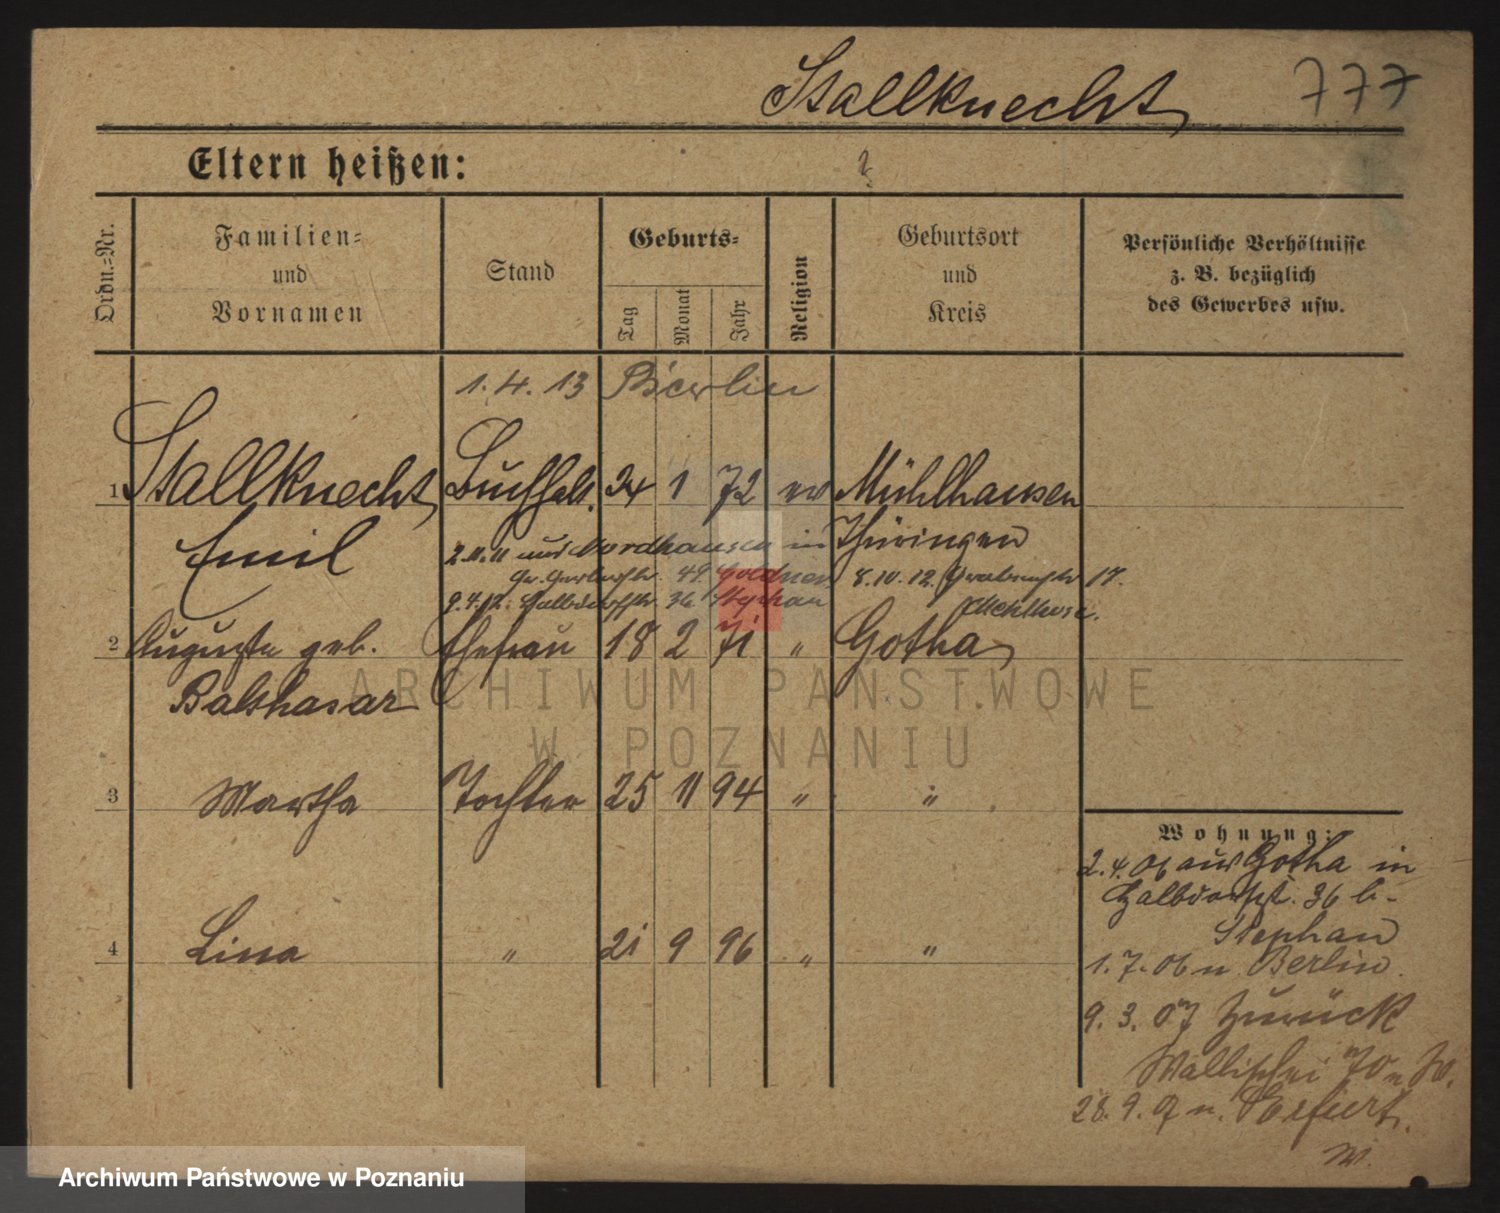 Stallknecht 777
Eltern heißen: ?
Ordn.=Nr.
Familien=
und
Vornamen
Stand
Geburts=
Tag
Monat
Jahr
Religion
Geburtsort
und
Kreis
Persönliche Verhältnisse
z. B. bezüglich
des Gewerbes usw.
1. 4. 13 Berlin
1 Stallknecht Buchhalt. 24 1 72 ev Mühlhausen
Emil Thüringen
2.11.11 aus Nordhausen in
49. Goldner 8.10.12. 17.
9.4.12. Halbdorfstr. 36 Stephan
2 Auguste geb. Ehefrau 18 2 71 " Gotha
Balthasar
3 Martha Tochter 25 11 94 " "
4 Lina " 21 9 96 " "
Wohnung:
2.4.06 aus Gotha in
Halbdorfst. 36 b.
Stephan
1.7.06 n. Berlin.
9.3.07 zurück
Wallischei 70
28.9.07 n. Erfurt.
ARCHIWUM PAŃSTWOWE
W POZNANIU
Archiwum Państwowe w Poznaniu